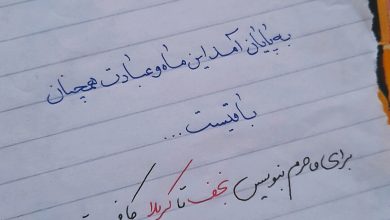 به پایان آمد این ماه و عبادت همچنان
باقیست...
برای ما حرم بنویس نجف تا کربلا